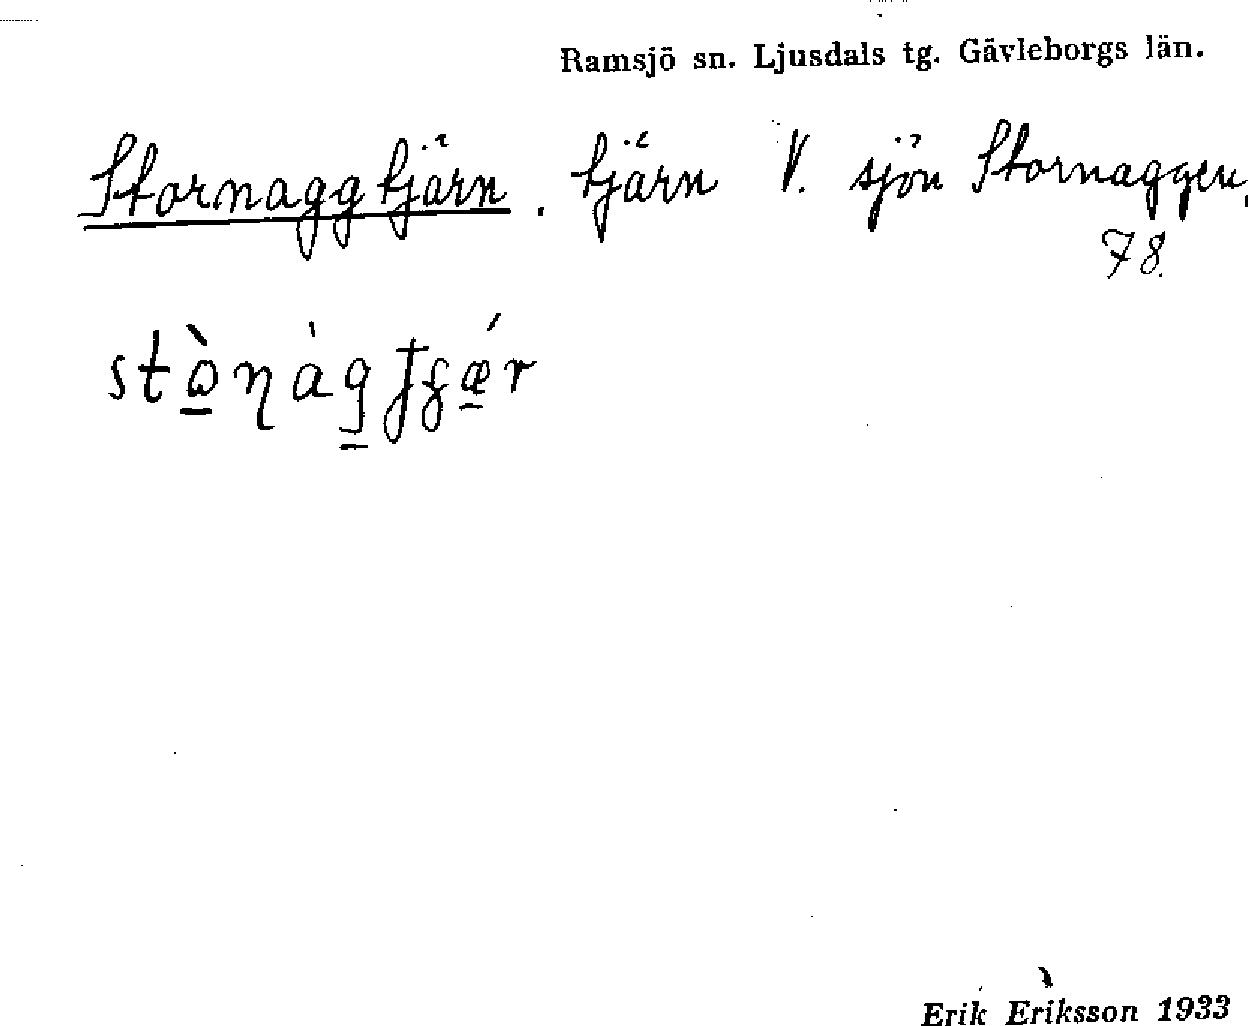 Ramsjö sn. Ljusdals tg. Gävleborgs län.
Stornaggtjärn. tjärn V. sjön Stornaggen.
78.
Erik Eriksson 1933